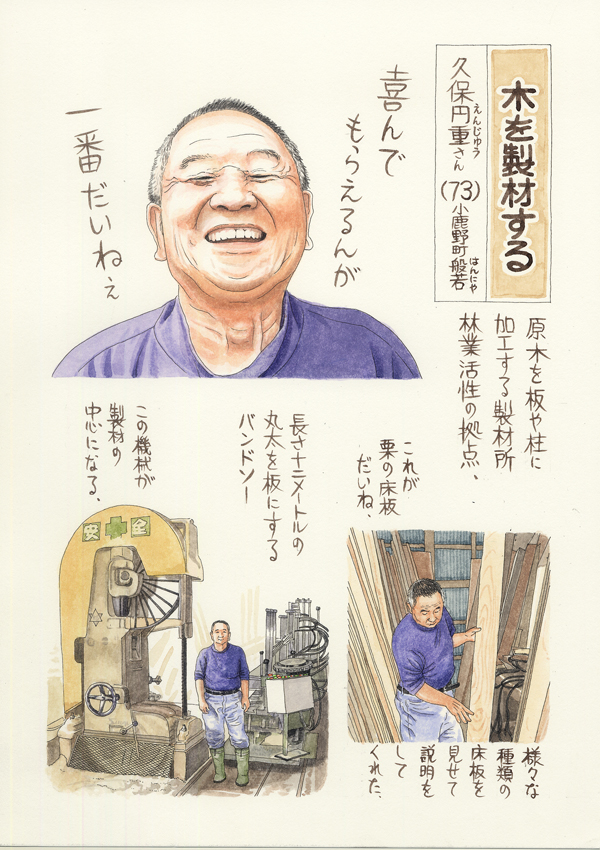 木を製材する
久保円重さん
えんじゅう
(73)小鹿野町般若
はんにゃ
喜んで
もらえるんが
一番だいねぇ
原木を板や柱に
加工する製材所
林業活性の拠点、
これが
栗の床板
だいね、
長さ十二メートルの
丸太を板にする
バンドソー
この機械が
製材の
中心になる、
安全
様々な
種類の
床板を
見せて
説明を
して
くれた、